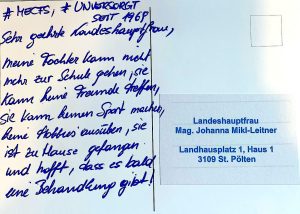 #MECFS, #UNVERSORGT
SEIT 1969
Sehr geehrte Landeshauptfrau,
meine Tochter kann nicht
mehr zur Schule gehen, sie
kann keine Freunde treffen,
sie kann keinen Sport machen,
keine Hobbies ausüben, sie
ist zu Hause gefangen
und hofft, dass es bald
eine Behandlung gibt!
Landeshauptfrau
Mag. Johanna Mikl-Leitner
Landhausplatz 1, Haus 1
3109 St. Pölten